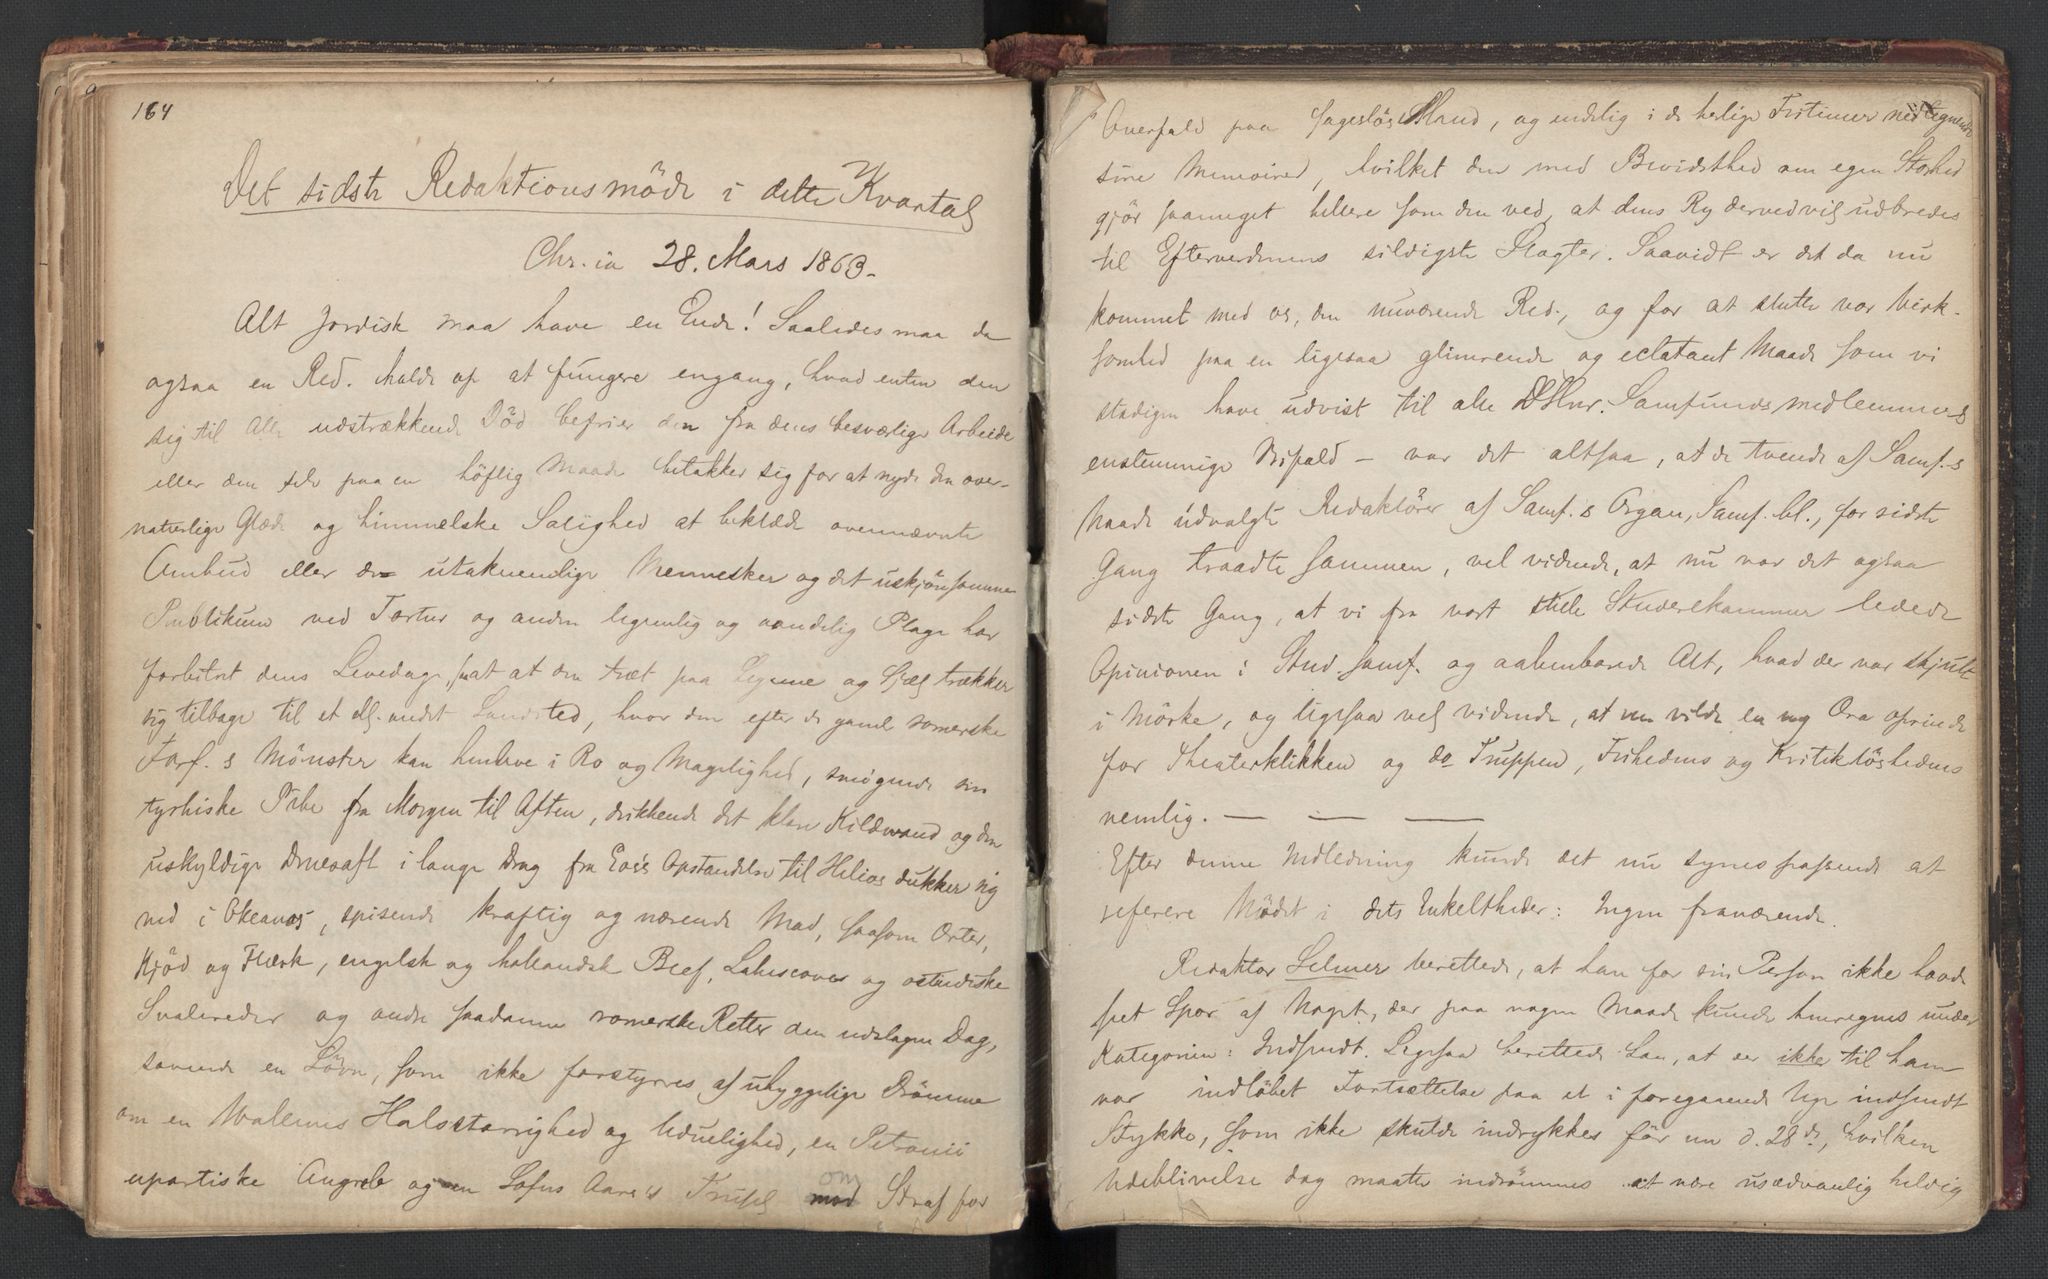 164
Det sidste Redaktionsmöde i dette Kvartal
Chr.ia 28. Mars 1863.
Alt Jordisk maa have en Ende! Saaledes maa da
ogsaa en Red. holde op at fungere engang, hvad enten den
sig til Alle udstrækkende Död befrier den fra dens besværlige Arbeide
eller den selv paa en höflig Maade betakker sig for at nyde den over-
naturlige Glæde og himmelske Salighed at beklæde ovennævnte
Ombud eller de utaknemlige Mennesker og det uskjönsomme
Publikum ved Tortur og anden legemlig og aandelig Plage har
forbittret dens Levedage, saa at den træt paa Legeme og Sjæl trækker
sig tilbage til et ell. andet Landsted, hvor den efter de gamle romerske
Forf.s Mönster kan henleve i Ro og Magelighed, smögende sin
tyrkiske Pibe fra Morgen til Aften, drikkende det klare Kildevand og den
uskyldige Druesaft i lange Drag fra Eos's Opstandelse til Helios dukker sig
ned i Okeanos, spisende kraftig og nærende Mad, saasom Erter,
Kjöd og Flesk, engelsk og hollandsk Beef, Labscoves og ostindiske
Svalereder og andre saadanne romerske Retter den udslagne Dag,
sovende en Sövn, som ikke forstyrres af uhyggelige Drömme
om en Wallems Halsstarrighed og Uduelighed, en Petronii
upartiske Angreb og en Lofus Aars's Trusel om Straf for
Overfald paa sageslös Mand, og endelig i de herlige Fritimer nedtegnende
sine Memoirer, hvilket den med Bevidsthed om egen Storhed
gjör saameget hellere som den ved, at dens Ry derved vil udbredes
til Efterverdenens sildigste Slægter. Saavidt er det da nu
kommet med os, den nuværende Red., og for at slutte vor Virk-
somhed paa en ligesaa glimrende og eclatant Maade som vi
stadigen have udvist til alle DHrr. Samfundsmedlemmers
enstemmige Bifald – var det altsaa, at de tvende af Samf.s
Naade udvalgte Redaktörer af Samf.s Organ, Samf.bl., for sidste
Gang traadte sammen, vel vidende, at nu var det ogsaa
sidste Gang, at vi fra vort stille Studerekammer ledede
Opinionen i Stud.samf. og aabenbarede Alt, hvad der var skjult
i Mörke, og ligesaa vel vidende, at nu vilde en ny Æra oprinde
for Theaterklikken og do Truppen, Frihedens og Kritiklöshedens
nemlig. — — —
Efter denne Indledning kunde det nu synes passende at
referere Mödet i dets Enkeltheder: Ingen fraværende.
Redaktör Selmer berettede, at han for sin Person ikke havde
seet Spor af Noget, der paa nogen Maade kunde henregnes under
Kategorien: Indsendt. Ligesaa berettede han, at der ikke til ham
var indlöbet Fortsættelse paa et i foregaaende Uge indsendt
Stykke, som ikke skulde indrykkes för nu d. 28de, hvilken
Udeblivelse dog maatte indrömmes at være usædvanlig heldig